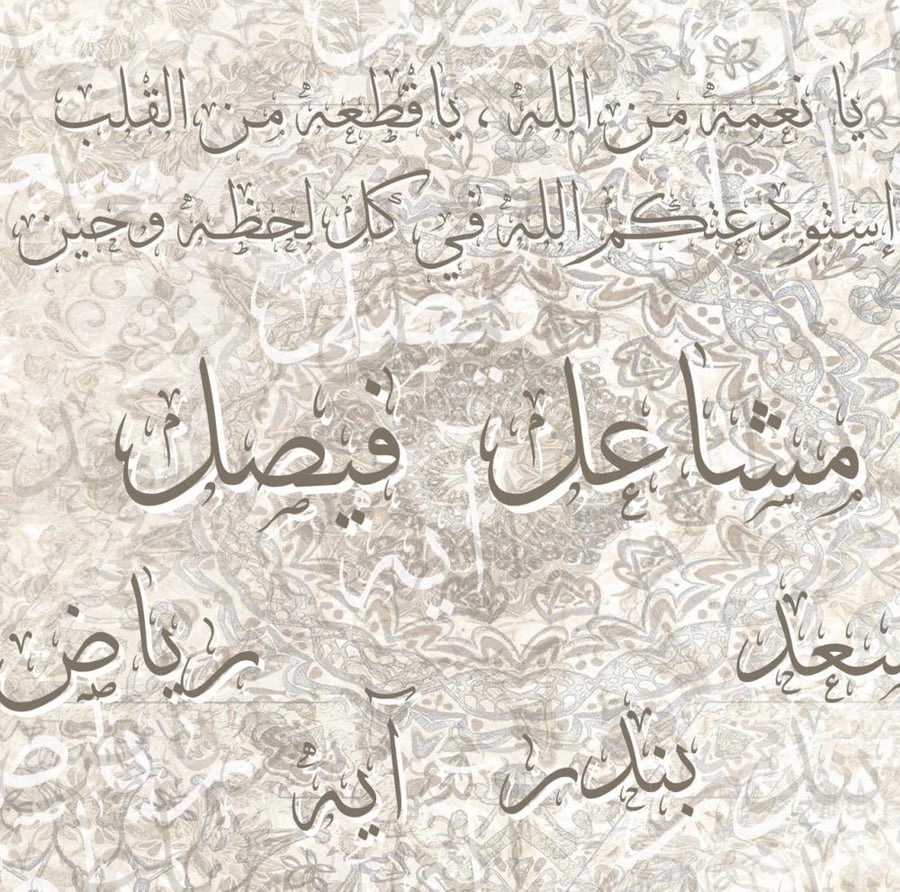 يا نعمه من الله ، يا قطعه من القلب
إستودعتكم الله في كل لحظه وحين
فيصل
مشاعل فيصل
آية
سعد رياض
بندر آيه